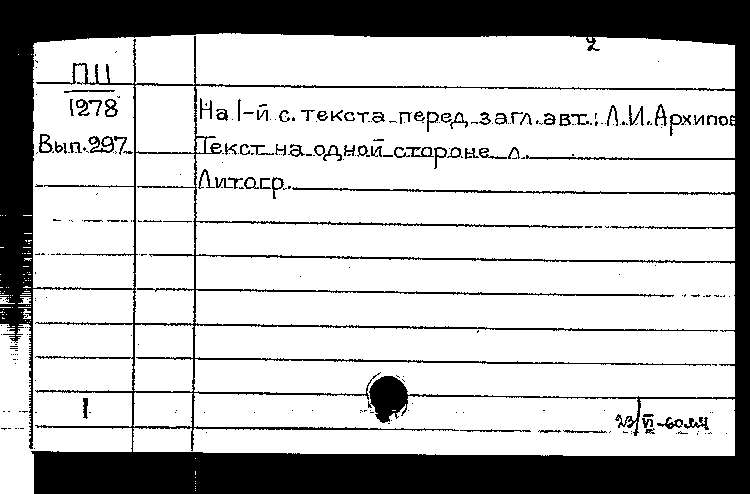 2
П11
1278
Вып.297
На 1-й с. текста перед загл. авт.: Л.И.Архипов
Текст на одной стороне л.
Литогр.
1
23/VI-60